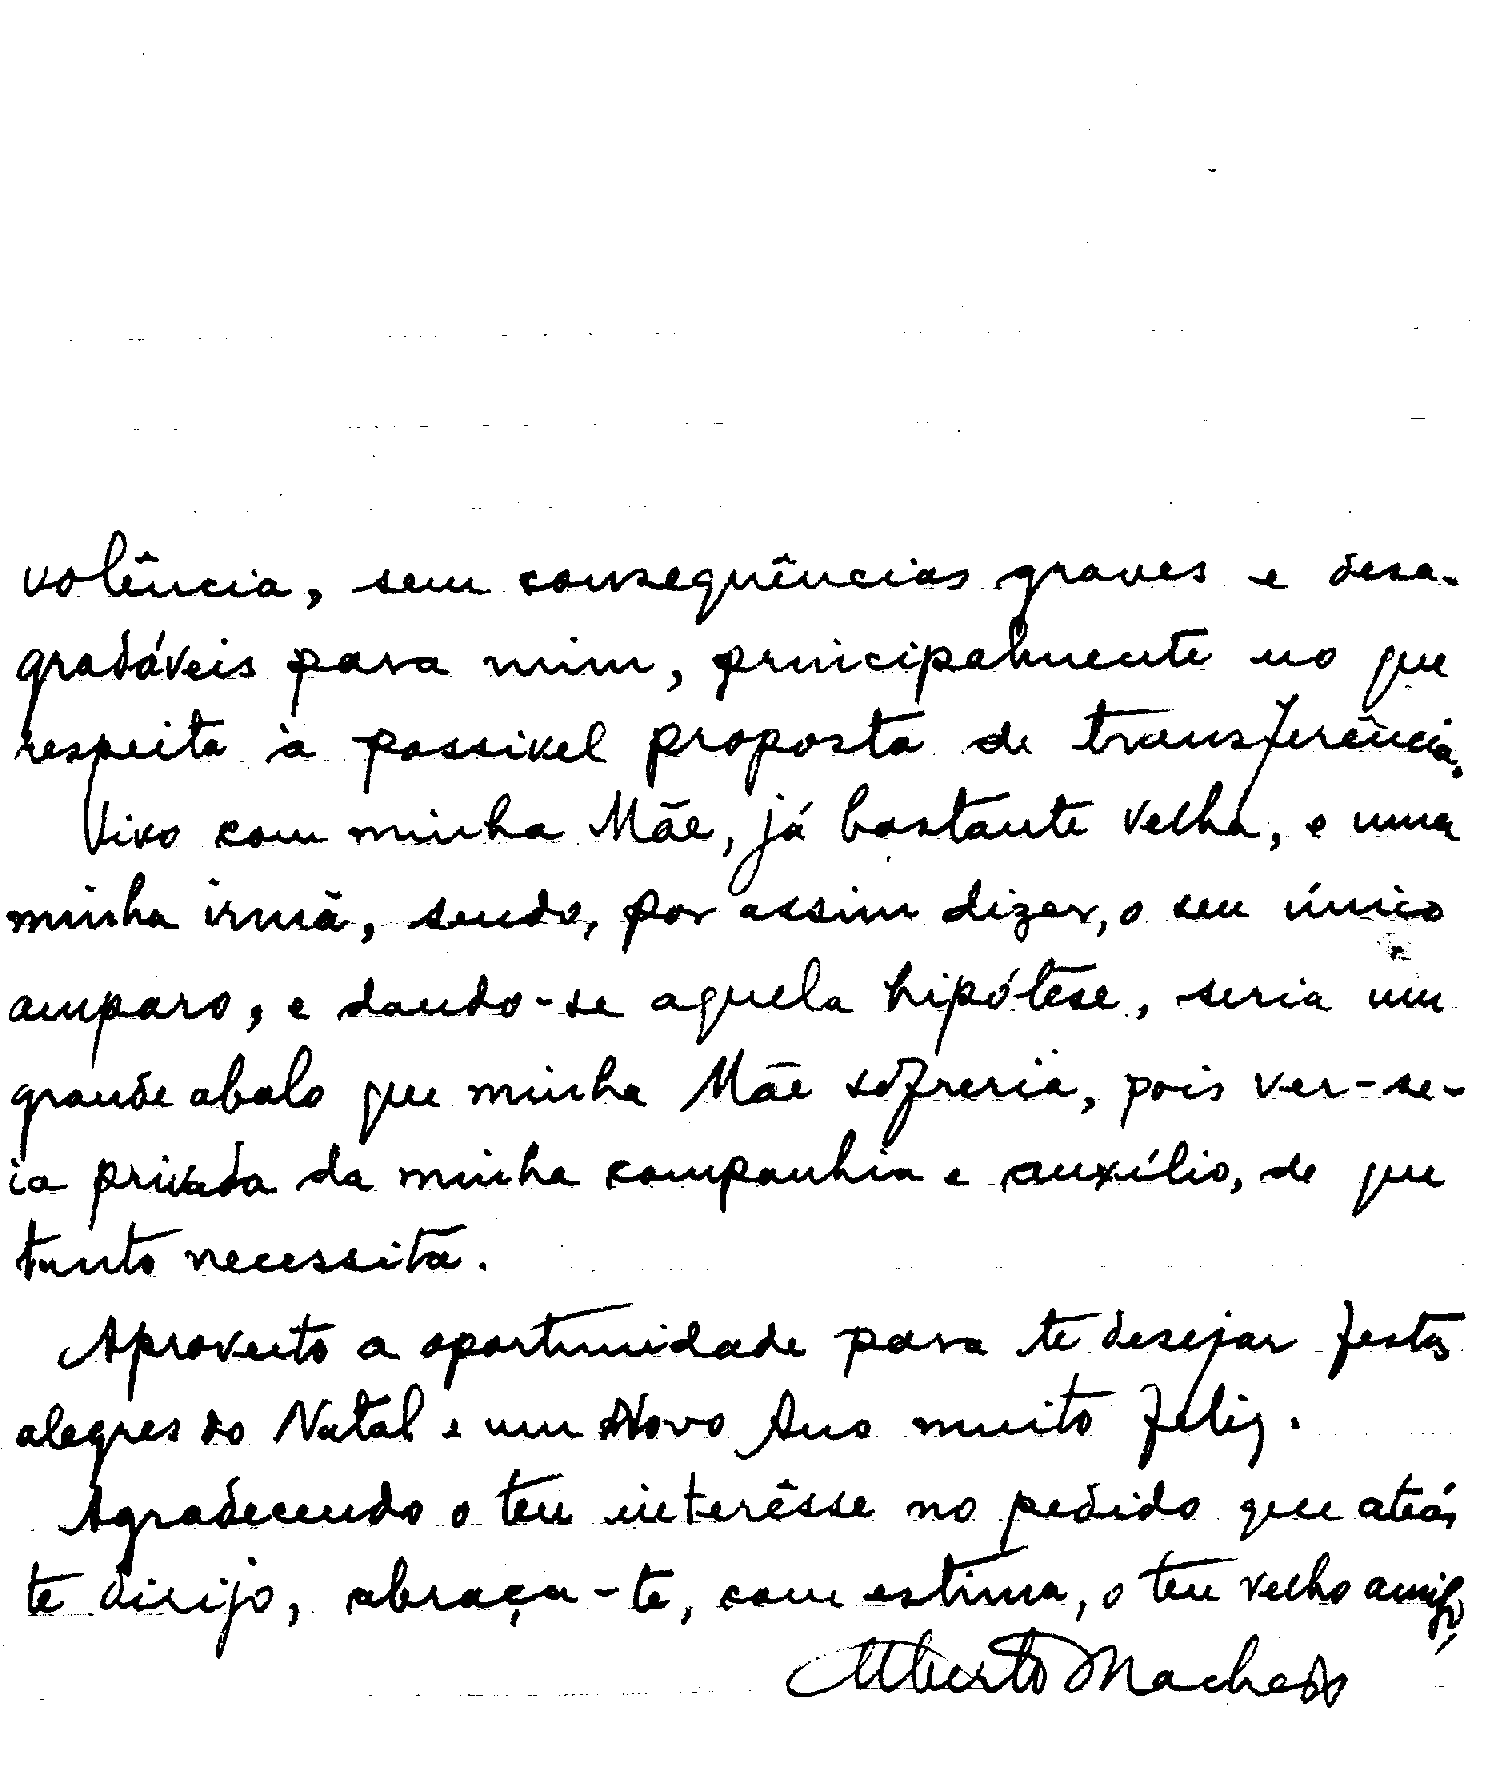 volência, sem consequências graves e desa-
gradáveis para mim, principalmente no que
respeita à possível proposta de transferência.
Vivo com minha Mãe, já bastante velha, e uma
minha irmã, sendo, por assim dizer, o seu único
amparo, e dando-se aquela hipótese, seria um
grande abalo que minha Mãe sofreria, pois ver-se-
ia privada da minha companhia e auxílio, de que
tanto necessita.
Aproveito a oportunidade para te desejar festas
alegres do Natal e um Novo Ano muito feliz.
Agradecendo o teu interêsse no pedido que atrás
te dirijo, abraça-te, com estima, o teu velho amigo,
Alberto Machado